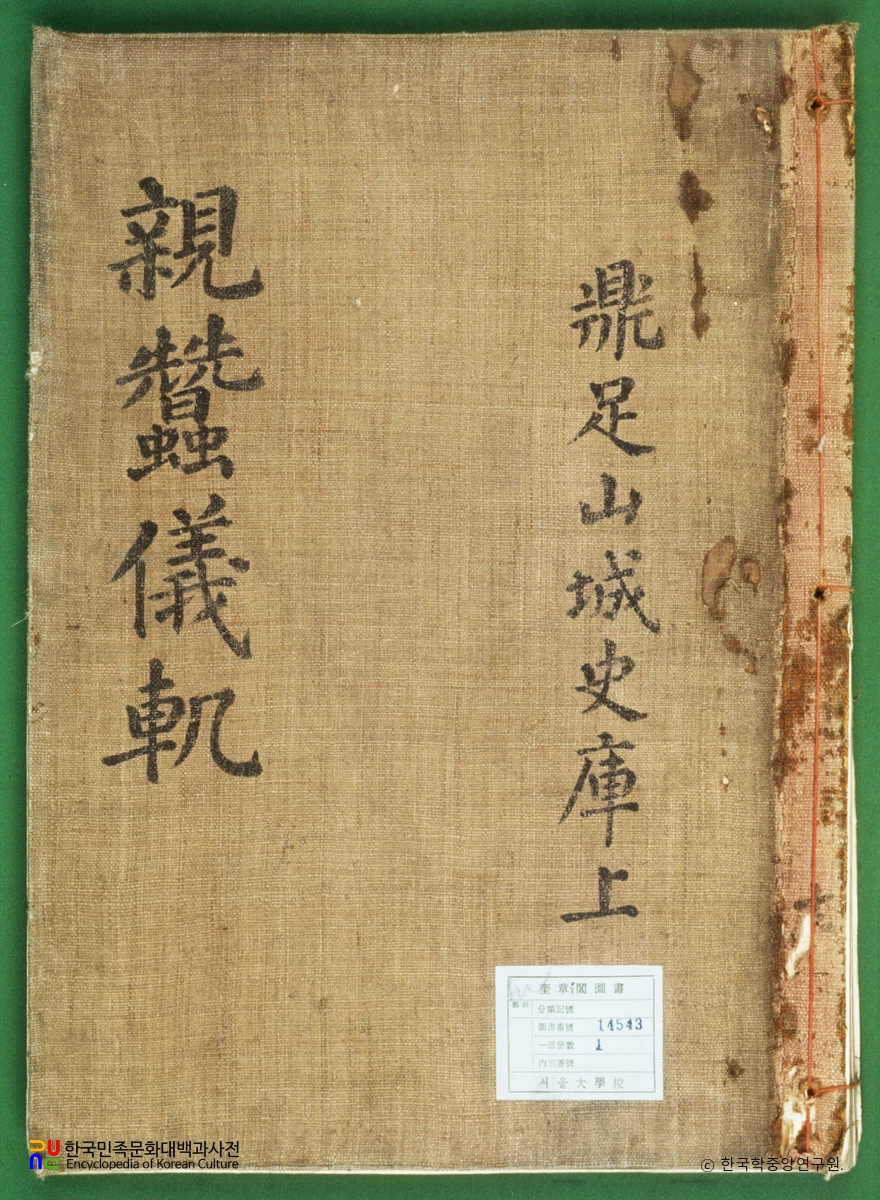 鼎足山城史庫上
親蠶儀軌
奎章閣圖書
分類記號
圖書番號 14543
一部冊數 1
內冊番號
서울大學校
한국민족문화대백과사전
Encyclopedia of Korean Culture
© 한국학중앙연구원.